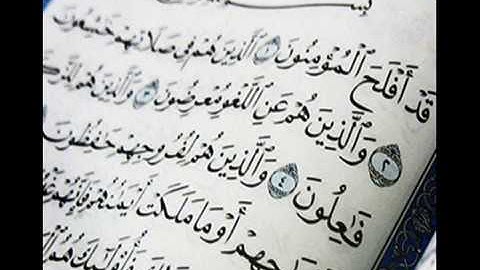 بِسْمِ
قَدْ أَفْلَحَ ٱلْمُؤْمِنُونَ ١ ٱلَّذِينَ هُمْ فِى صَلَاتِهِمْ خَٰشِعُونَ
٢ وَٱلَّذِينَ هُمْ عَنِ ٱللَّغْوِ مُعْرِضُونَ ٣ وَٱلَّذِينَ هُمْ
فَٰعِلُونَ ٤ وَٱلَّذِينَ هُمْ لِفُرُوجِهِمْ حَٰفِظُونَ
أَوْ مَا مَلَكَتْ أَيْمَٰنُهُمْ فَإِنَّهُمْ